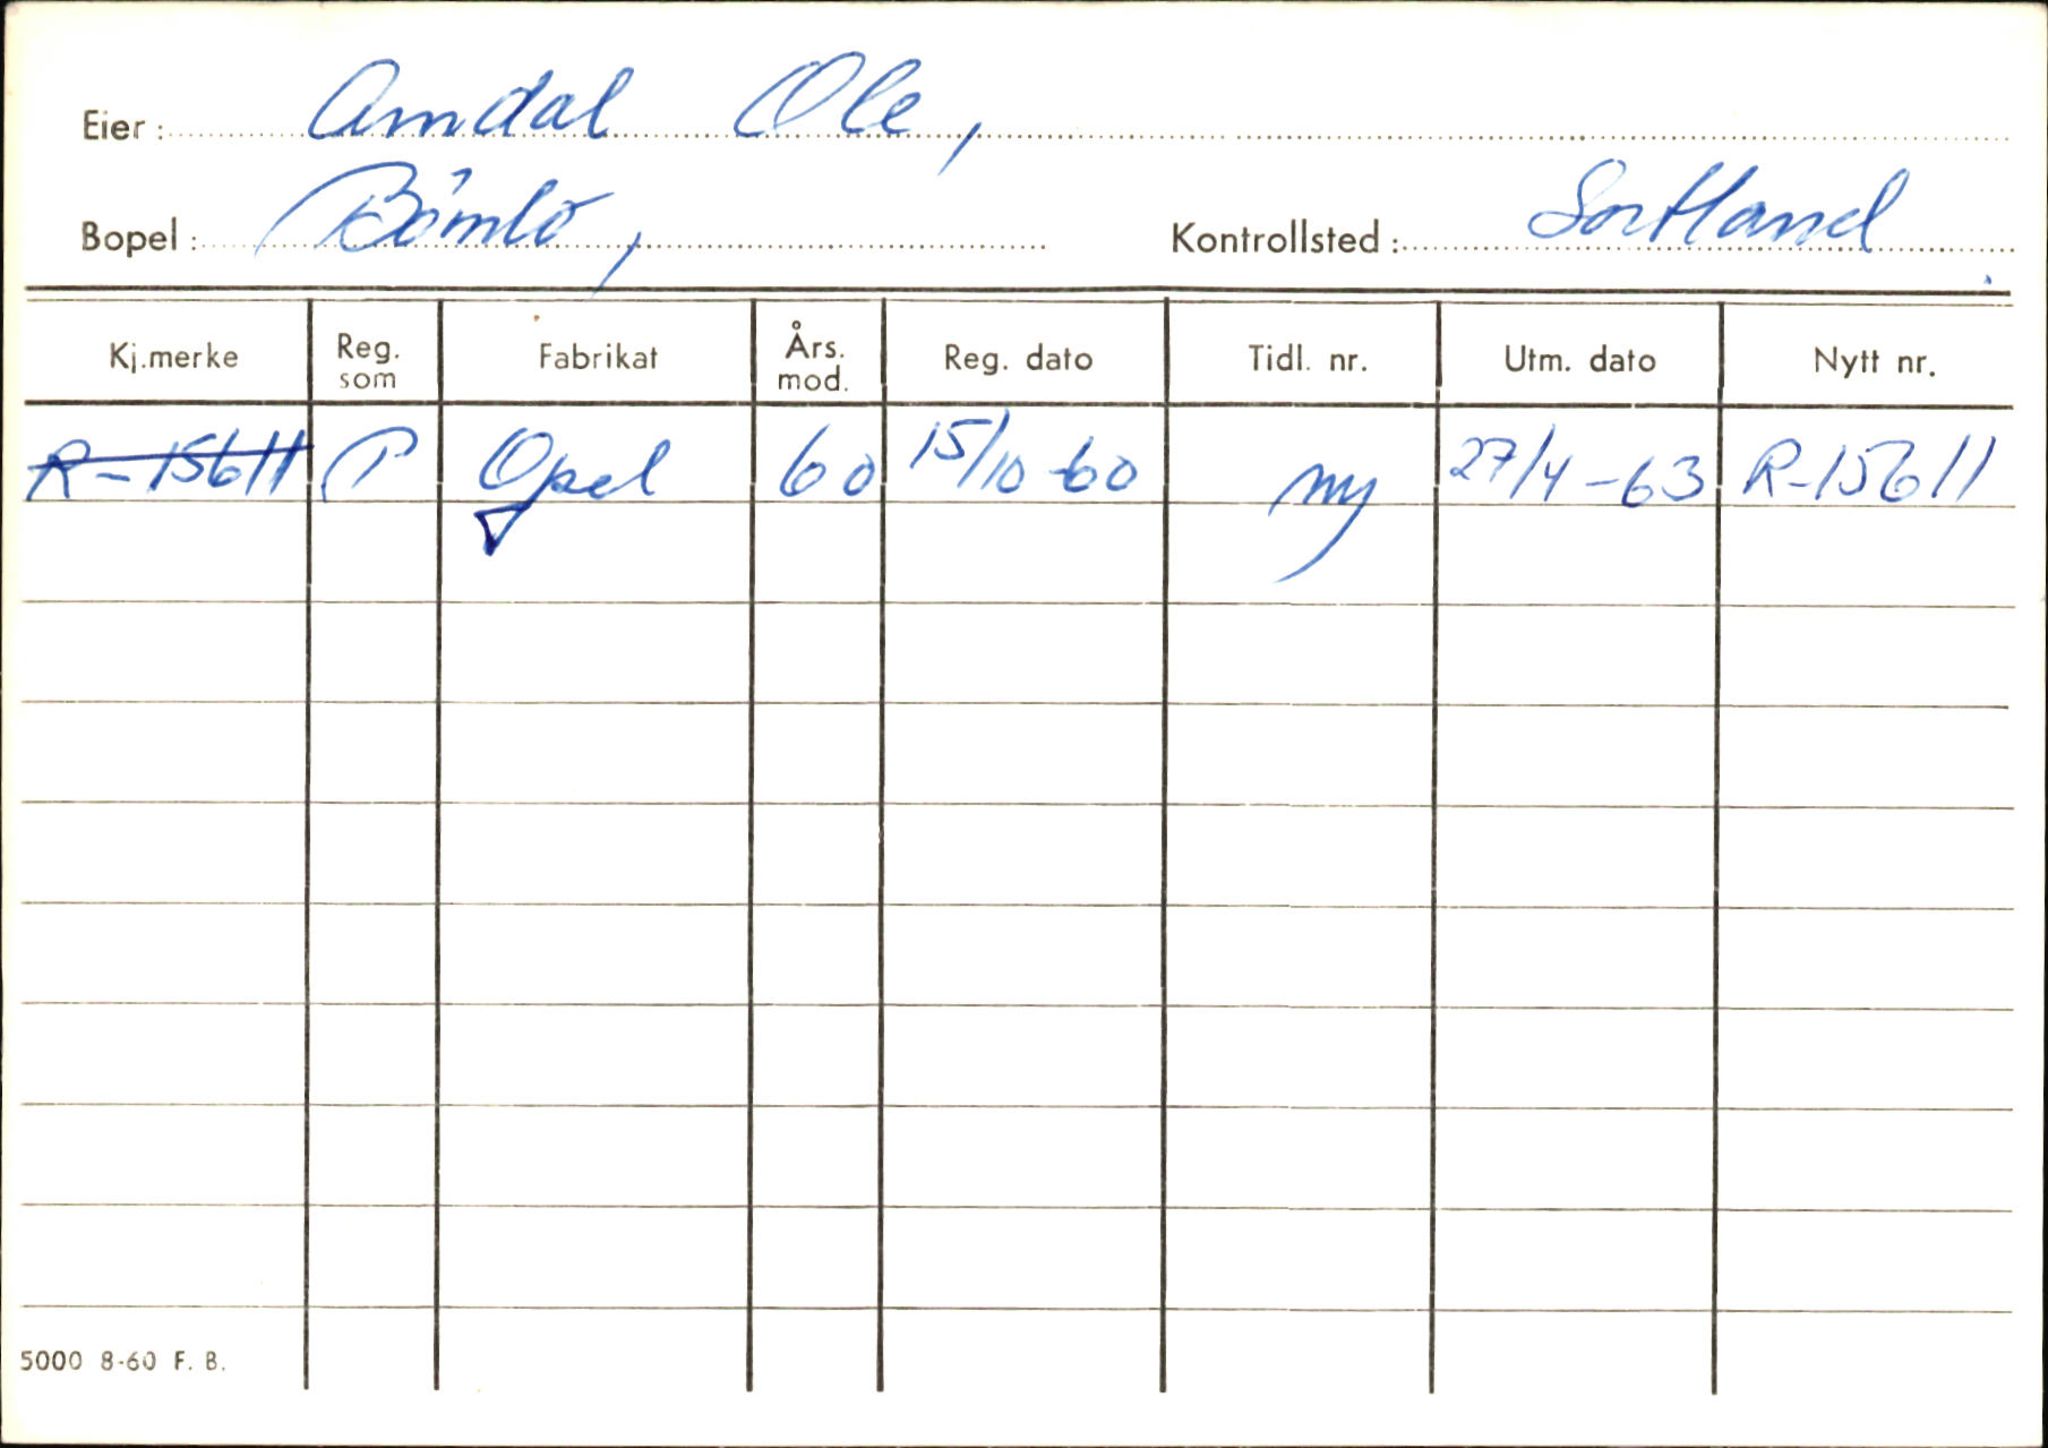 Eier: Amdal Ole,
Bopel: Bömlo, Kontrollsted: Sortland
Kj.merke Reg. som Fabrikat Års. mod. Reg. dato Tidl. nr. Utm. dato Nytt nr.
R-15611 P Opel 60 15/10-60 ny 27/4-63 R-15611
5000 8-60 F. B.